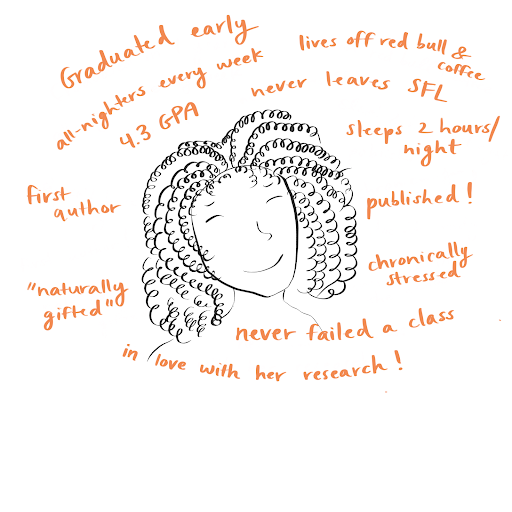 Graduated early
lives off red bull &
coffee
all-nighters every week
never leaves SFL
4.3 GPA
sleeps 2 hours/
night
first
author
published!
chronically
stressed
"naturally
gifted"
never failed a class
in love with her research!